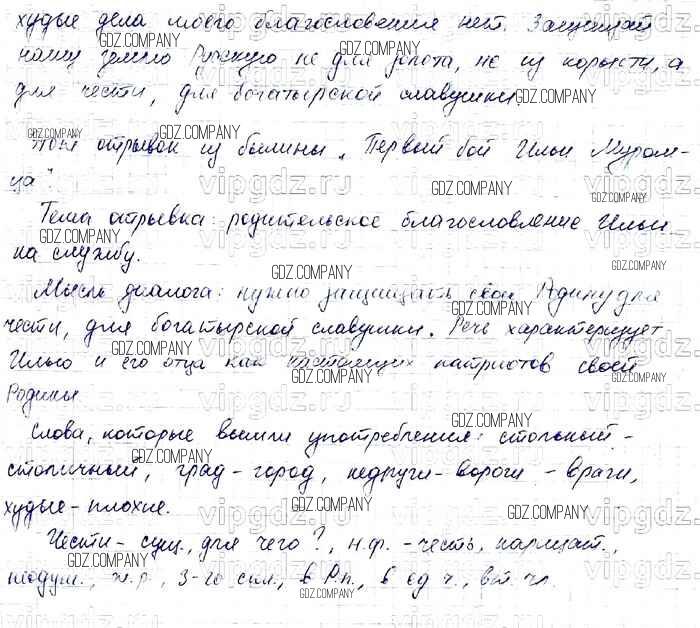 худые дела моего благословения нет. Защищай
нашу землю Русскую не для злота, не из корысти, а
для чести, для богатырской славушки.
Это отрывок из былины „Первый бой Ильи Муром-
ца"
Тема отрывка: родительское благословление Ильи
на службу.
Мысль диалога: нужно защищать свою Родину для
чести, для богатырской славушки. Речь характеризует
Илью и его отца как настоящих патриотов своей
Родины
Слова, которые вышли употребления: стольный -
столичный, град - город, недруги - вороги - враги,
худые - плохие.
Чести - сущ., для чего?, н.ф. - честь, нарицат.,
неодуш., ж.р., 3-го скл., в Р.п., в ед.ч., вт. чл.
GDZ.COMPANY
vipgdz.ru